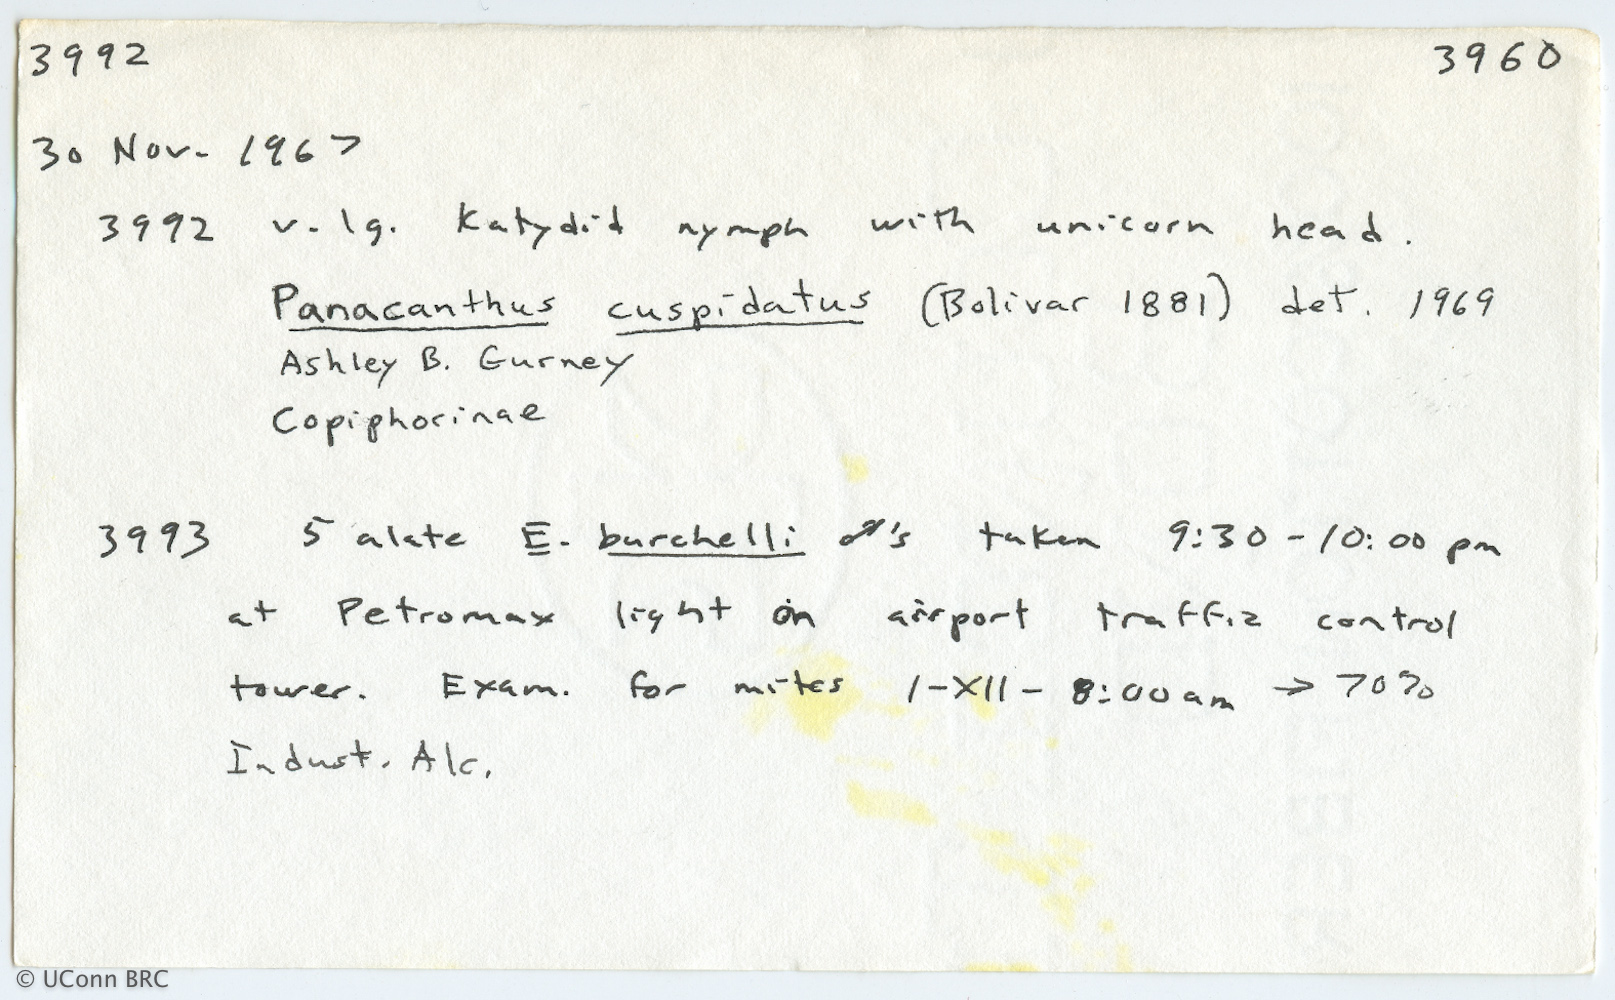 3992 3960
30 Nov. 1967
3992 v. lg. Katydid nymph with unicorn head.
Panacanthus cuspidatus (Bolivar 1881) det. 1969
Ashley B. Gurney
Copiphorinae
3993 5 alate E. burchelli ♂'s taken 9:30-10:00 pm
at Petromax light on airport traffic control
tower. Exam. for mites 1-XII- 8:00 am → 70%
Indust. Alc.
© UConn BRC